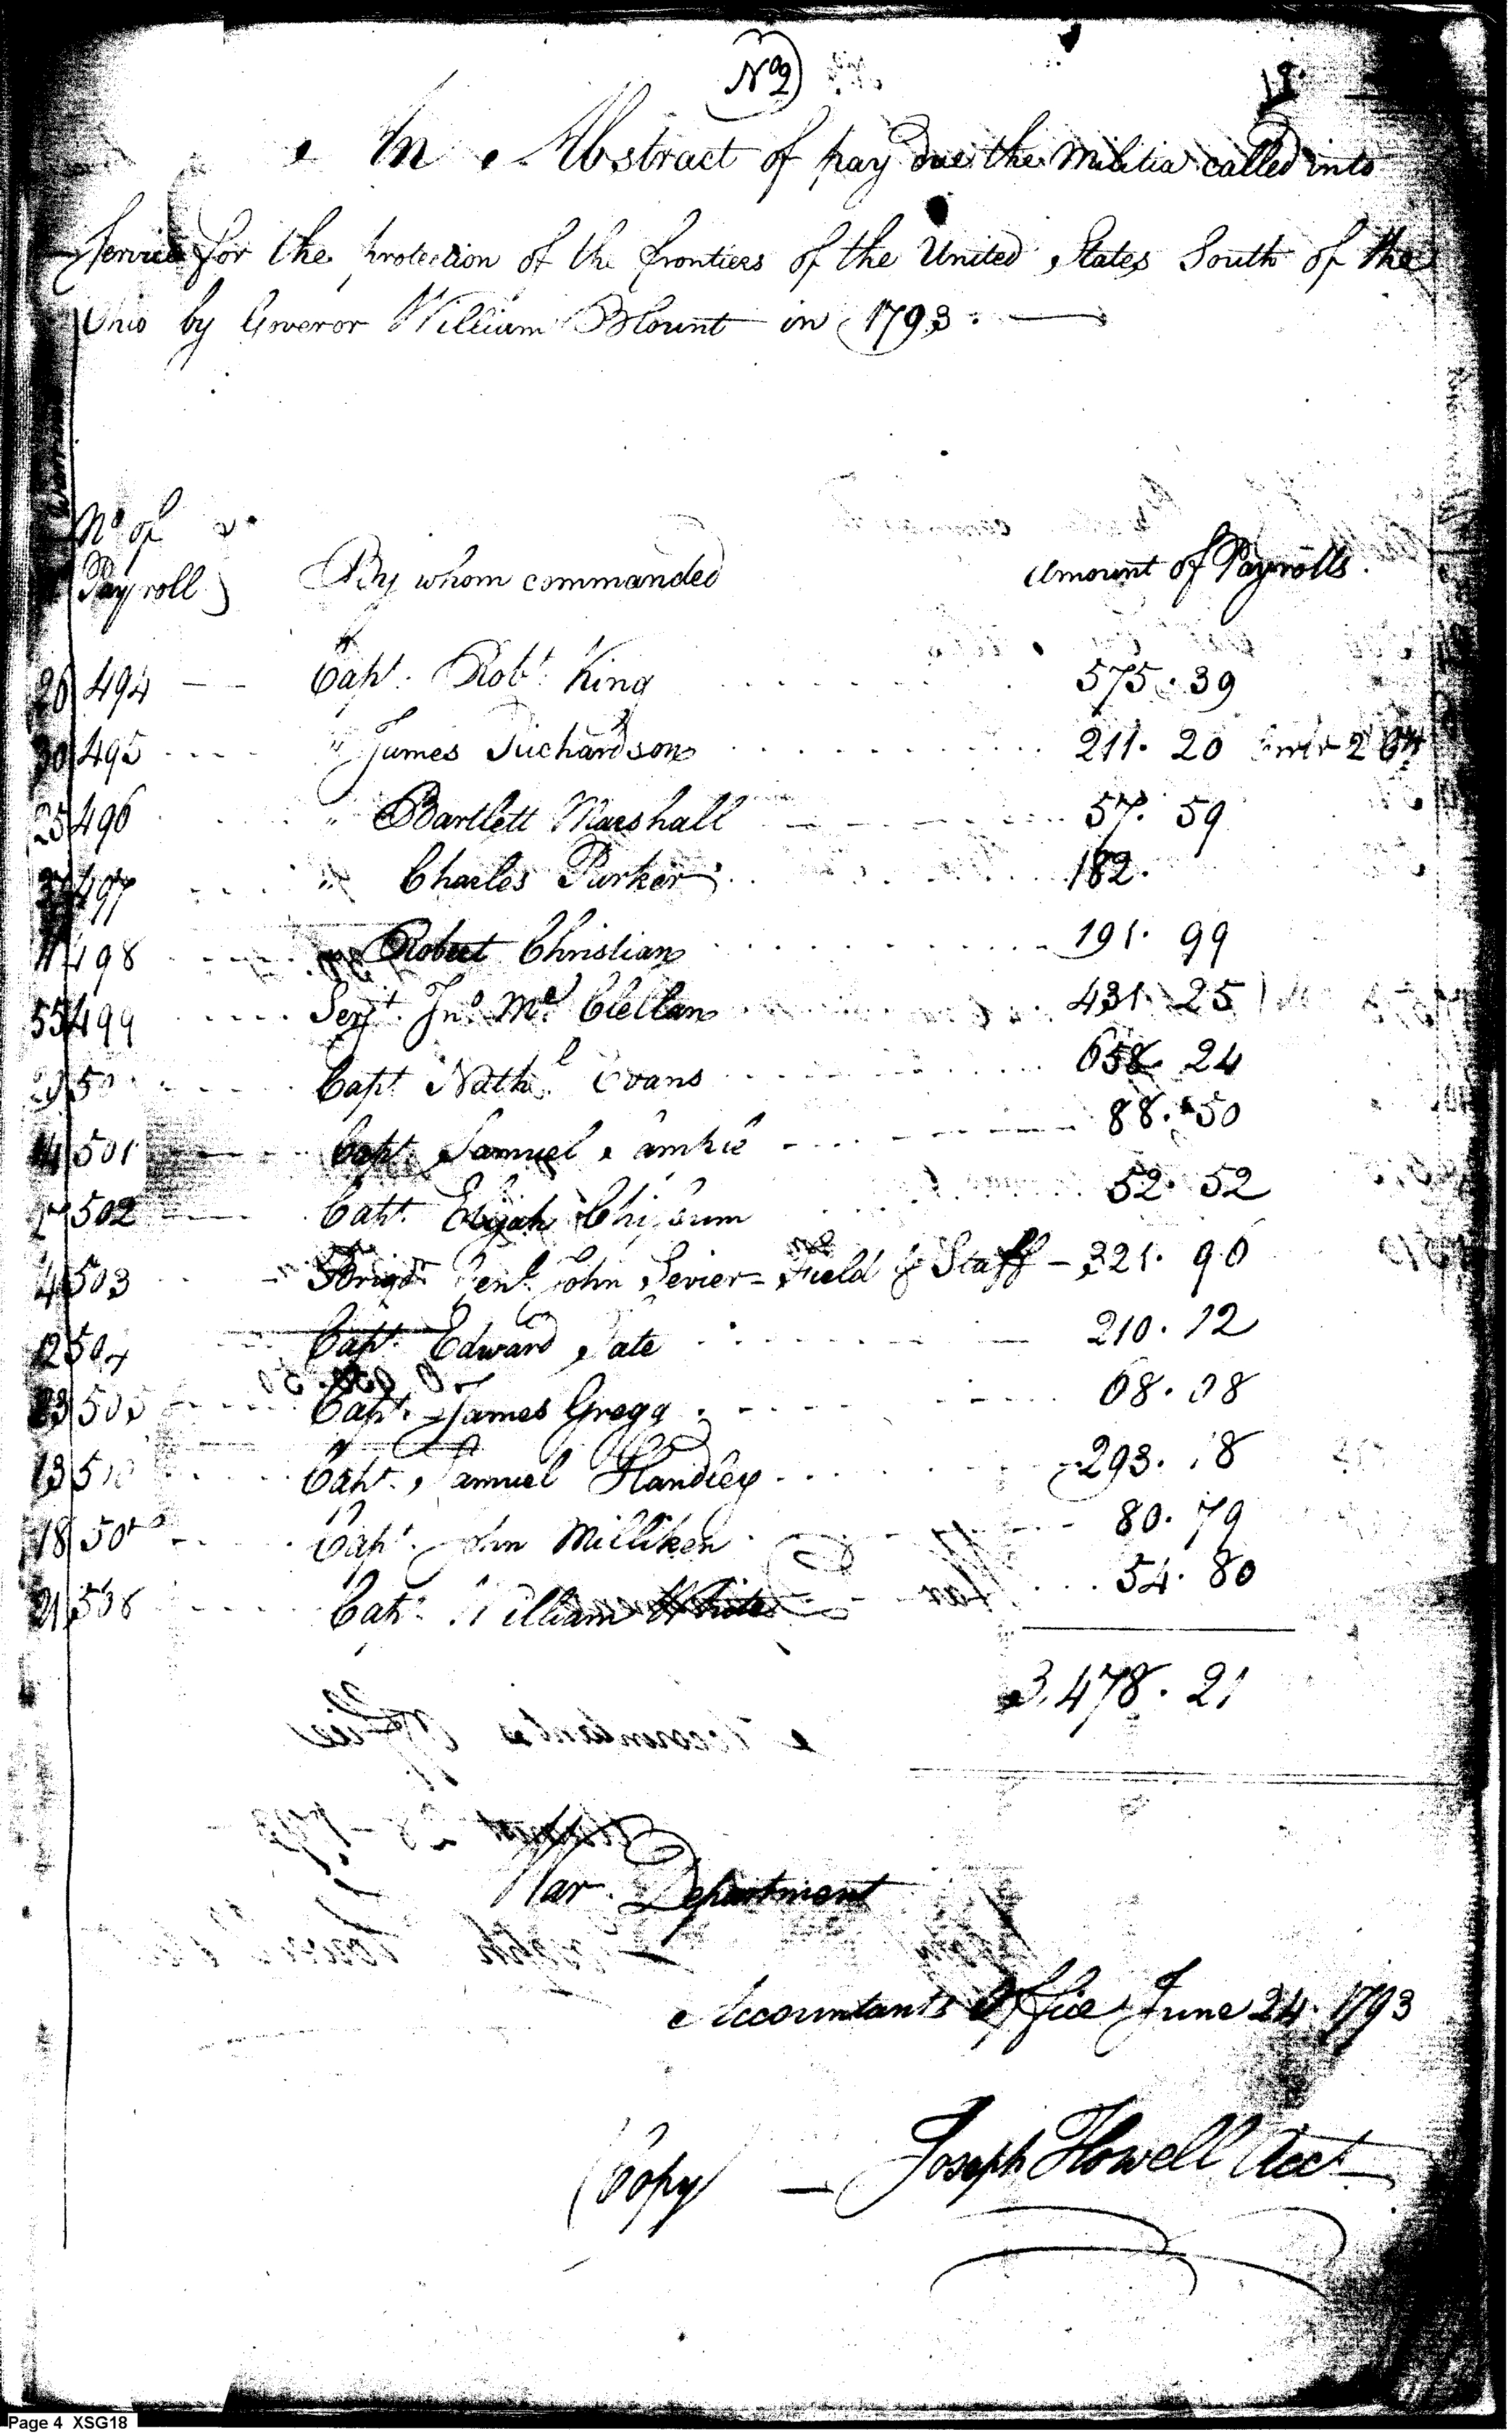 No 2
An Abstract of pay due the Militia called into
Service for the protection of the frontiers of the United States South of the
Ohio by Goveror William Blount in 1793.
No of
Payroll } By whom commanded Amount of Payrolls.
26 494 Capt. Robt. King 575. 39
30 495 " James Richardson 211. 20
25 496 " Bartlett Marshall 57. 59
497 " Charles Parker 182.
11 498 " Robert Christian 191. 99
55 499 Serjt. Jno. Mc Clellan 431. 25
Capt. Nathl. Evans 658. 24
14 501 Capt. Samuel 88. 50
502 Capt. Elijah Chissum 52. 52
4 503 Brigr. Genl. John Sevier - Field & Staff - 321. 96
12 504 Capt. Edward Tate 210. 12
23 505 Capt. James Gregg 68. 08
13 Capt. Samuel Handley 293. 18
18 Capt. John Milliken 80. 79
21 508 Capt. William White 54. 80
3,478. 21
War Department
Accountants Office June 24. 1793
(Copy) — Joseph Howell Acct
Page 4 XSG18